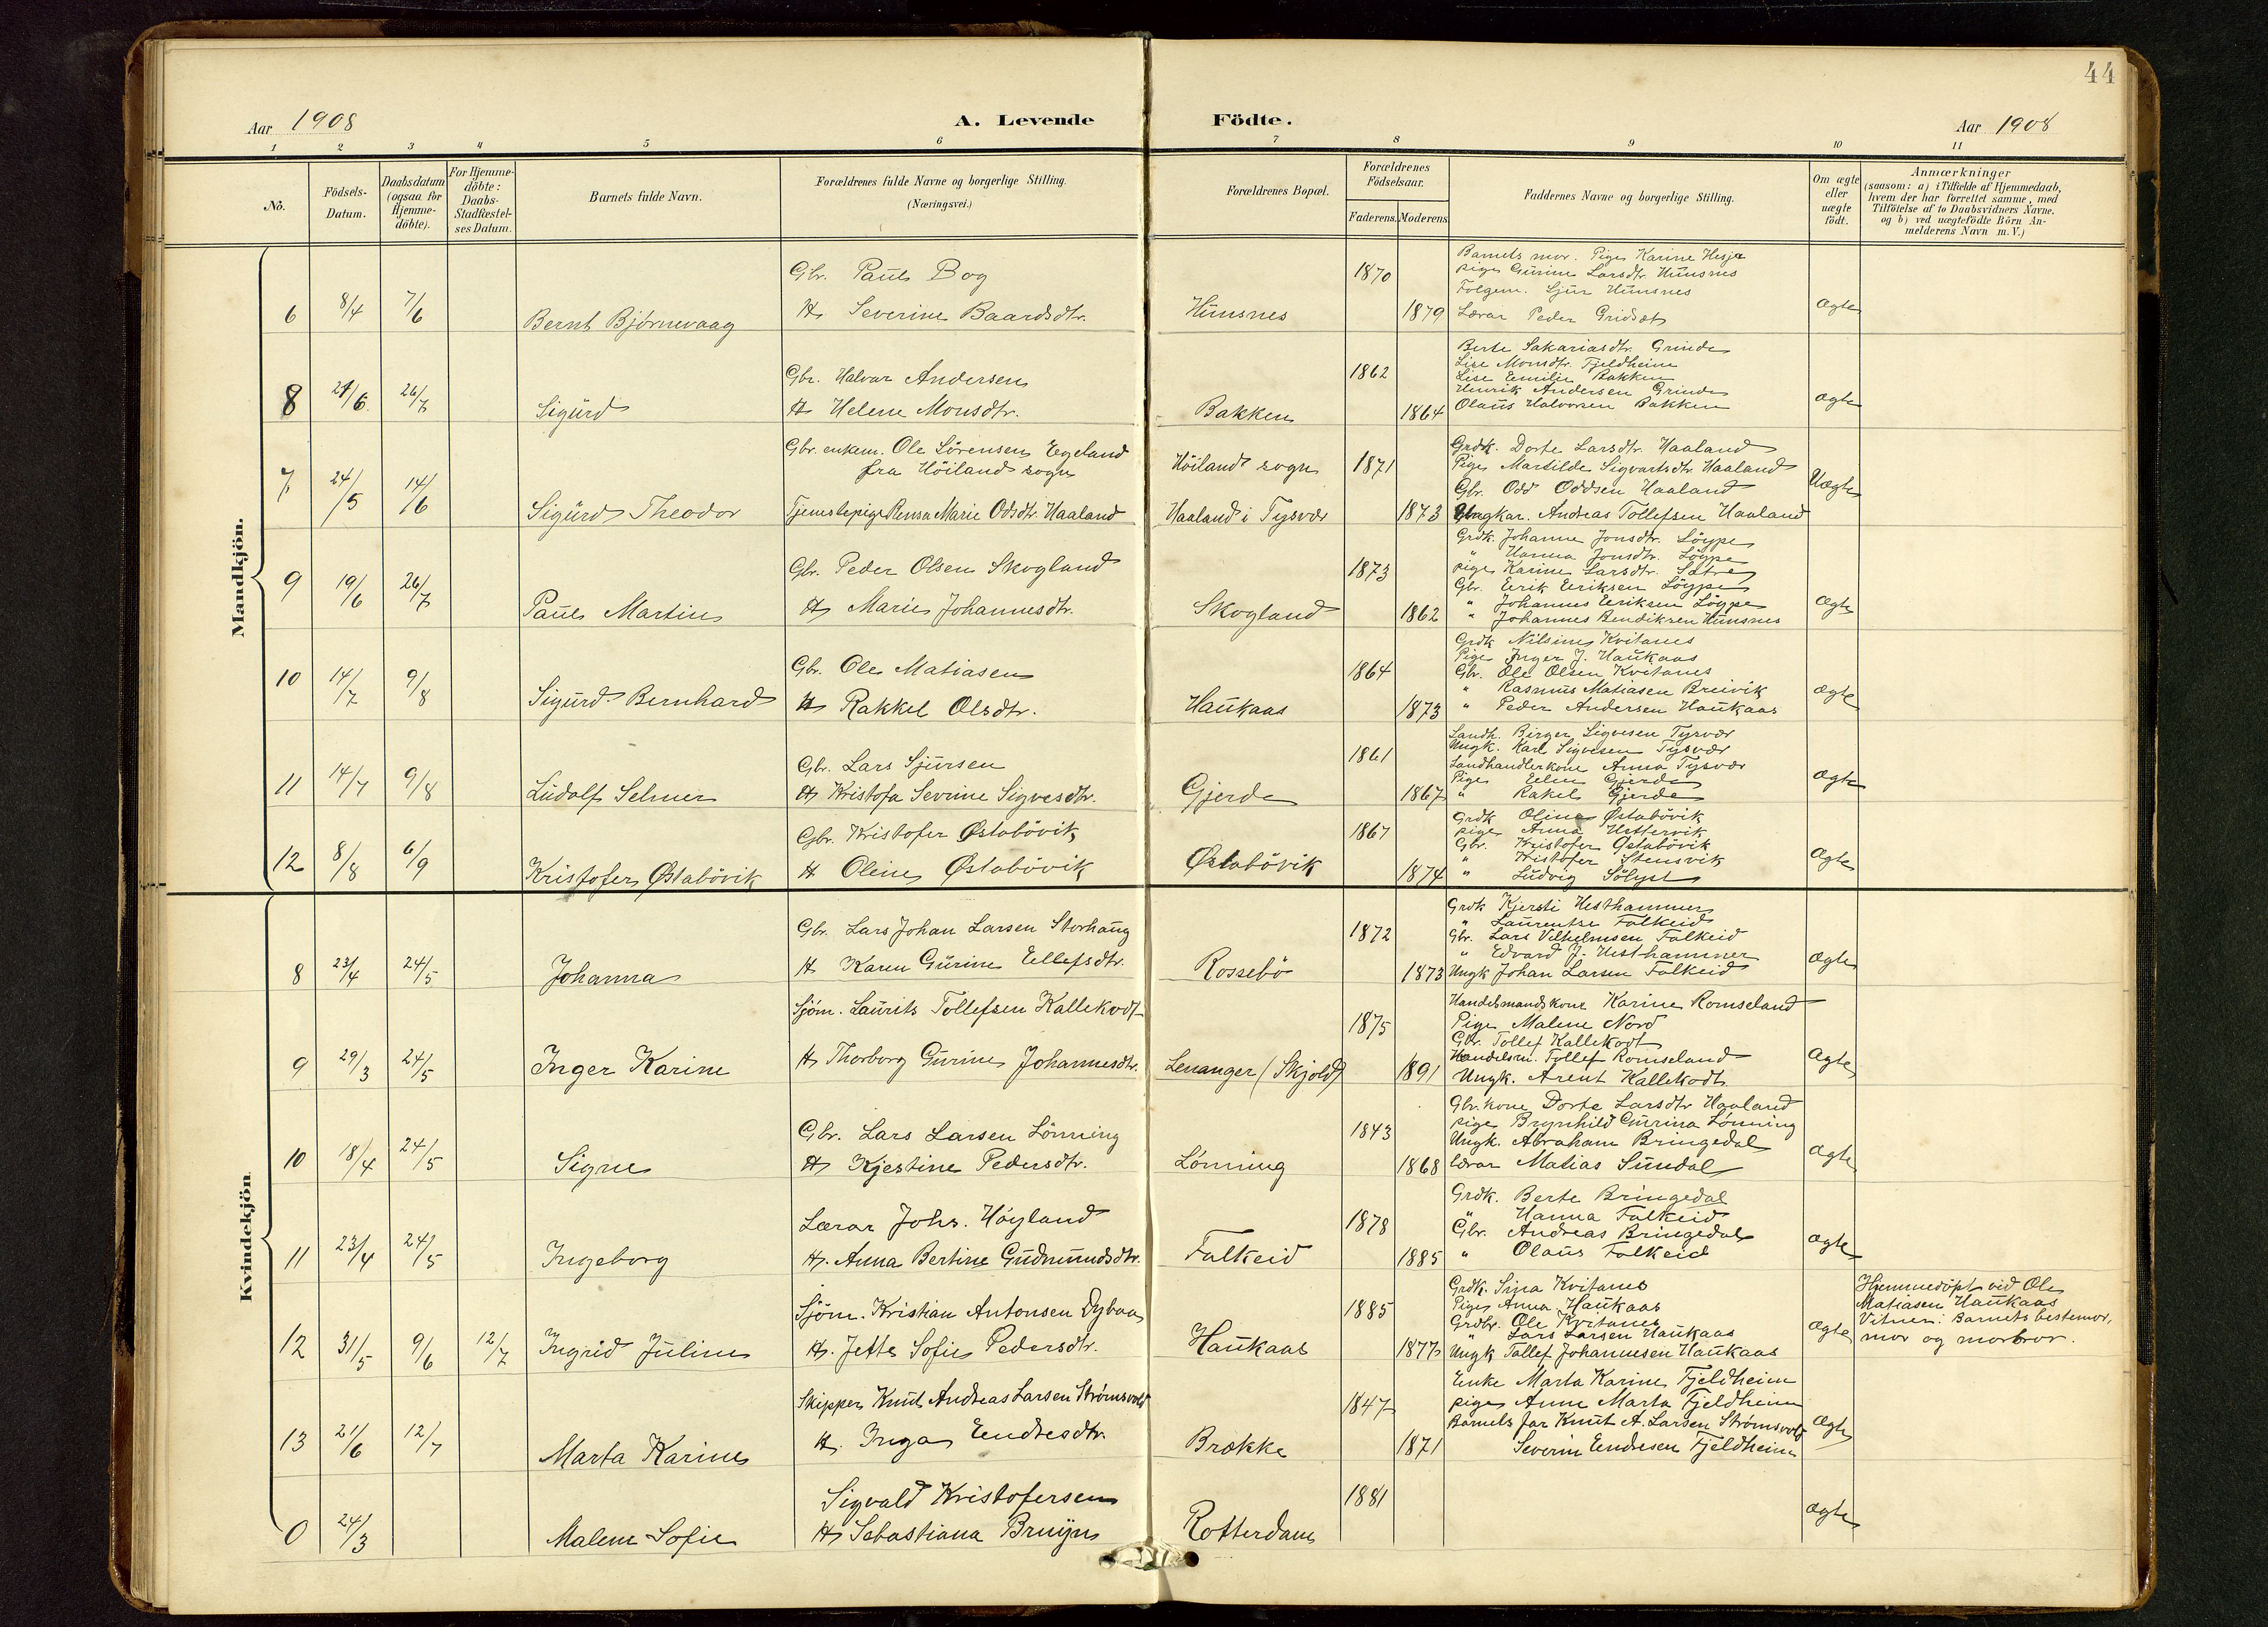 44
Aar 1908 A. Levende Födte. Aar 1908
1 2 3 4 5 6 7 8 9 10 11
No. Födsels-Datum. Daabsdatum (ogsaa for Hjemme-döbte). For Hjemme-döbte: Daabs-Stadfæstel-ses Datum. Barnets fulde Navn. Forældrenes fulde Navne og borgerlige Stilling. (Næringsvei.) Forældrenes Bopæl. Forældrenes Födselsaar. Faderens. Moderens. Faddernes Navne og borgerlige Stilling. Om ægte eller uægte födt. Anmærkninger (saasom: a) i Tilfælde af Hjemmedaab, hvem der har forrettet samme, med Tilföielse af to Daabsvidners Navne. og b) ved uægtefödte Börn An-melderens Navn m. V.)
Mandkjön.
6 8/4 7/6 Bernt Bjørnevaag
Gbr. Paul Bog
H Severine Baardsdtr.
Hünsnes 1870 1879
Barnets mor. Pige Karine Hesja
pige Gürine Larsdtr. Hünsnes
Folgem. Sjur Hünsnes
Lærar Peder Gridset
Ægte
8 21/6 26/7 Sigürd
Gbr. Halvar Andersen
H Helene Monsdtr.
Bakken 1862 1864
Berte Sakariasdtr. Grinde
Lise Monsdtr. Fjeldheim
Lise Emilie Bakken
Henrik Andersen Grinde
Olaüs Halvorsen Bakken
Ægte
7 24/5 14/6 Sigürd Theodor
Gbr. enkem. Ole Sörensen Egeland
fra Höiland sogn
Tjenestepige Rensa Marie Odsdtr. Haaland
Höiland sogn 1871
Haaland i Tysvær 1873
Grdk. Dorte Larsdtr. Haaland
Pige Martilde Sigvartsdtr. Haaland
Gbr. Odd Oddsen Haaland
Ungkar. Andreas Tollefsen Haaland
Uægte
9 19/6 26/7 Paül Martin
Gbr. Peder Olsen Skogland
H Marie Johannesdtr.
Skogland 1873 1862
Grdk. Johanne Jonsdtr. Löype
" Hanna Jonsdtr. Löype
pige Karine Larsdtr. Sætre
Gbr. Eerik Eeriksen Löype
" Johannes Eeriksen Löype
" Johannes Bendiksen Hünsnes
Ægte
10 14/7 9/8 Sigürd Bernhard
Gbr. Ole Matiasen
H Rakkel Olsdtr.
Haükaas 1864 1873
Grdk Nilsine Kvitanes
Pige Inger J. Haükaas
Gbr. Ole Olsen Kvitanes
" Rasmüs Matiasen Breivik
" Peder Andersen Haükaas
Ægte
11 14/7 9/8 Lüdolf Selmer
Gbr. Lars Sjürsen
H Kristofa Sevrine Sigvesdtr.
Gjerde 1861 1867
Landh. Birger Sigvesen Tysvær
Ungk. Karl Sigvesen Tysvær
Landhandlerkone Anna Tysvær
Pige Eelen Gjerde
" Rakel Gjerde
Ægte
12 8/8 6/9 Kristofer Østabövik
Gbr. Kristofer Østabövik
H Oline Østabövik
Østabövik 1867 1874
Grdk Oline Østabövik
pige Anna Hettervik
Gbr. Kristofer Østabövik
" Kristofer Stensvik
" Lüdvig Sölyst
Ægte
Kvindekjön
8 23/4 24/5 Johanna
Gbr. Lars Johan Larsen Storhaüg
H Karen Gürine Ellefsdtr.
Rossebö 1872 1873
Grdk Kjersti Hesthammer
" Laurentse Falkeid
Gbr. Lars Vilhelmsen Falkeid
" Edvard J. Hesthammer
Ungk Johan Larsen Falkeid
Ægte
9 29/3 24/5 Inger Karine
Sjöm. Laürits Tollefsen Kallekodt
H Thorborg Gürine Johannesdtr.
Lenanger (Skjold) 1875 1891
Handelsmandskone Karine Romseland
Pige Malene Nord
Gbr. Tollef Kallekodt
Handelsm. Tollef Romseland
Ungk. Arent Kallekodt
Ægte
10 18/4 24/5 Signe
Gbr. Lars Larsen Lönning
H Kjestine Pedersdtr.
Lönning 1843 1868
Gbr. kone Dorte Larsdtr Haaland
pige Brynhild Gurina Lönning
Ungk. Abraham Bringedal
lærar Matias Sündal
Ægte
11 23/4 24/5 Ingeborg
Lærar Johs. Höyland
H. Anna Bertine Güdmündsdtr.
Falkeid 1878 1885
Grdk. Berte Bringedal
" Hanna Falkeid
Gbr. Andreas Bringedal
" Olaüs Falkeid
Ægte
12 31/5 9/6 12/7 Ingrid Jüline
Sjöm. Kristian Antonsen Dybaa
H. Jette Sofie Pedersdtr.
Haükaas 1885 1877
Grdk. Sina Kvitanes
Pige Anna Haükaas
Grdbr. Ole Kvitanes
" Lars Larsen Haükaas
Ungk Tollef Johannesen Haükaas
Ægte
Hjemmedöpt vid Ole
Matiasen Haükaas
Vitner: Barnets bestemor,
mor og morbror.
13 21/6 12/7 Marta Karine
Skipper Knüt Andreas Larsen Strømsvold
H. Inga Eendresdtr.
Brække 1847 1871
Enke Marta Karine Fjeldheim
pige Anne Marta Fjeldheim
Barnets far Knüt A. Larsen Strømsvold
Severin Eendresen Fjeldheim
Ægte
0 24/3 Malene Sofie
Sigvald Kristofersen
H Sebastiana Bruijn
Rotterdam 1881
Ægte